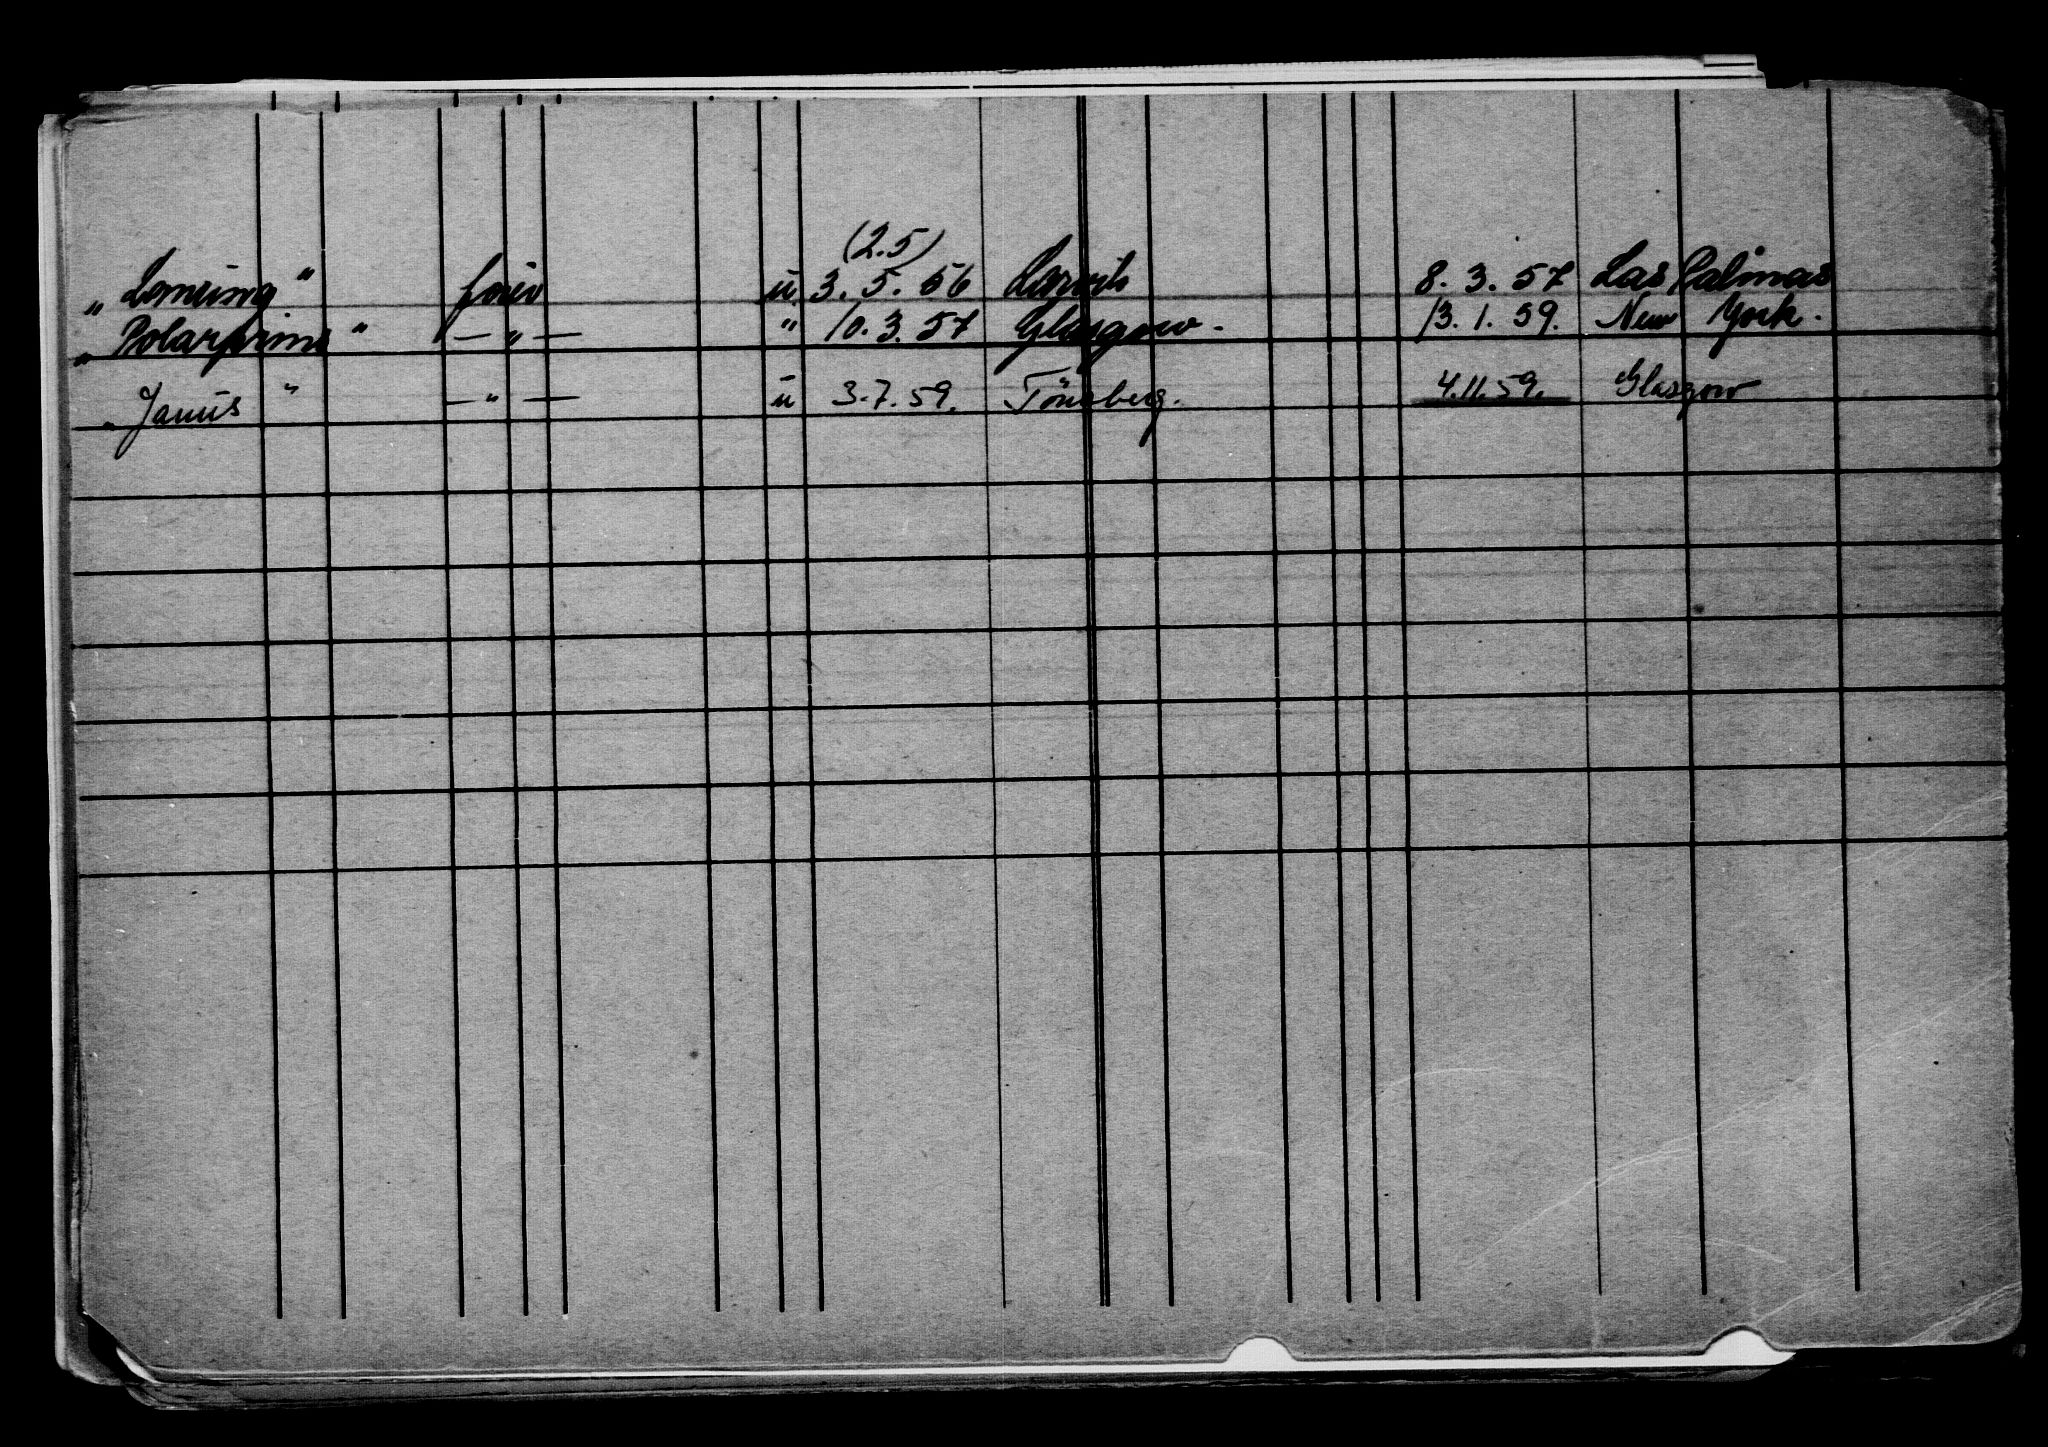 (2.5)
„ Lomúnq " förer ú 3. 5. 56 Larvik 8. 3. 57 Las Palmas
„ Polarprins " — " — " 10. 3. 57 Glasgow. 13. 1. 59. New York.
„ Janús " — " — ú 3.7.59. Tönsberg. 4.11.59. Glasgow